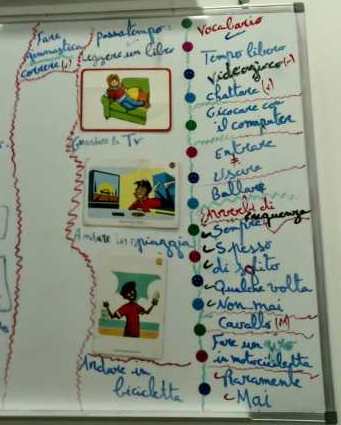 Fare
ginnastica
correre (
passatempo:
Leggere un libro
Guardare la TV
Andare in spiaggia
Andare in
bicicletta
Vocabolario
Tempo libero
Videogioco (
Chattare (
Giocare con
il computer
Entrare
≠
Uscire
Ballare
Avverbi di
frequenza
Sempre
Spesso
di solito
Qualche volta
Non mai
Cavallo (M)
Fare un giro
in motocicletta
Raramente
Mai